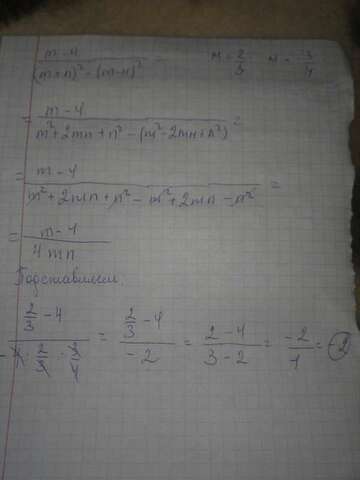 m-4 / (m+n)² - (m-n)² = m = 2/3 n = 3/4
= m-4 / m²+2mn+n² - (m²-2mn+n²) =
= m-4 / m²+2mn+n² - m²+2mn-n² =
= m-4 / 4mn
Подставляем.
2/3 - 4 / 4 · 2/3 · 3/4 = 2/3 - 4 / -2 = 2-4 / 3-2 = -2 / 1 = -2